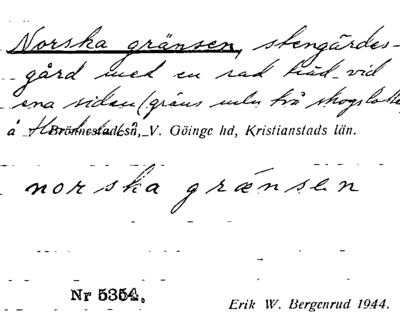 Norska gränsen, stengärdes-
gård med en rad träd vid
ena sidan (gräns mln två skogslotter
å Brönnestad sn, V. Göinge hd, Kristianstads län.
norska grænsen
Nr 5354.
Erik W. Bergenrud 1944.